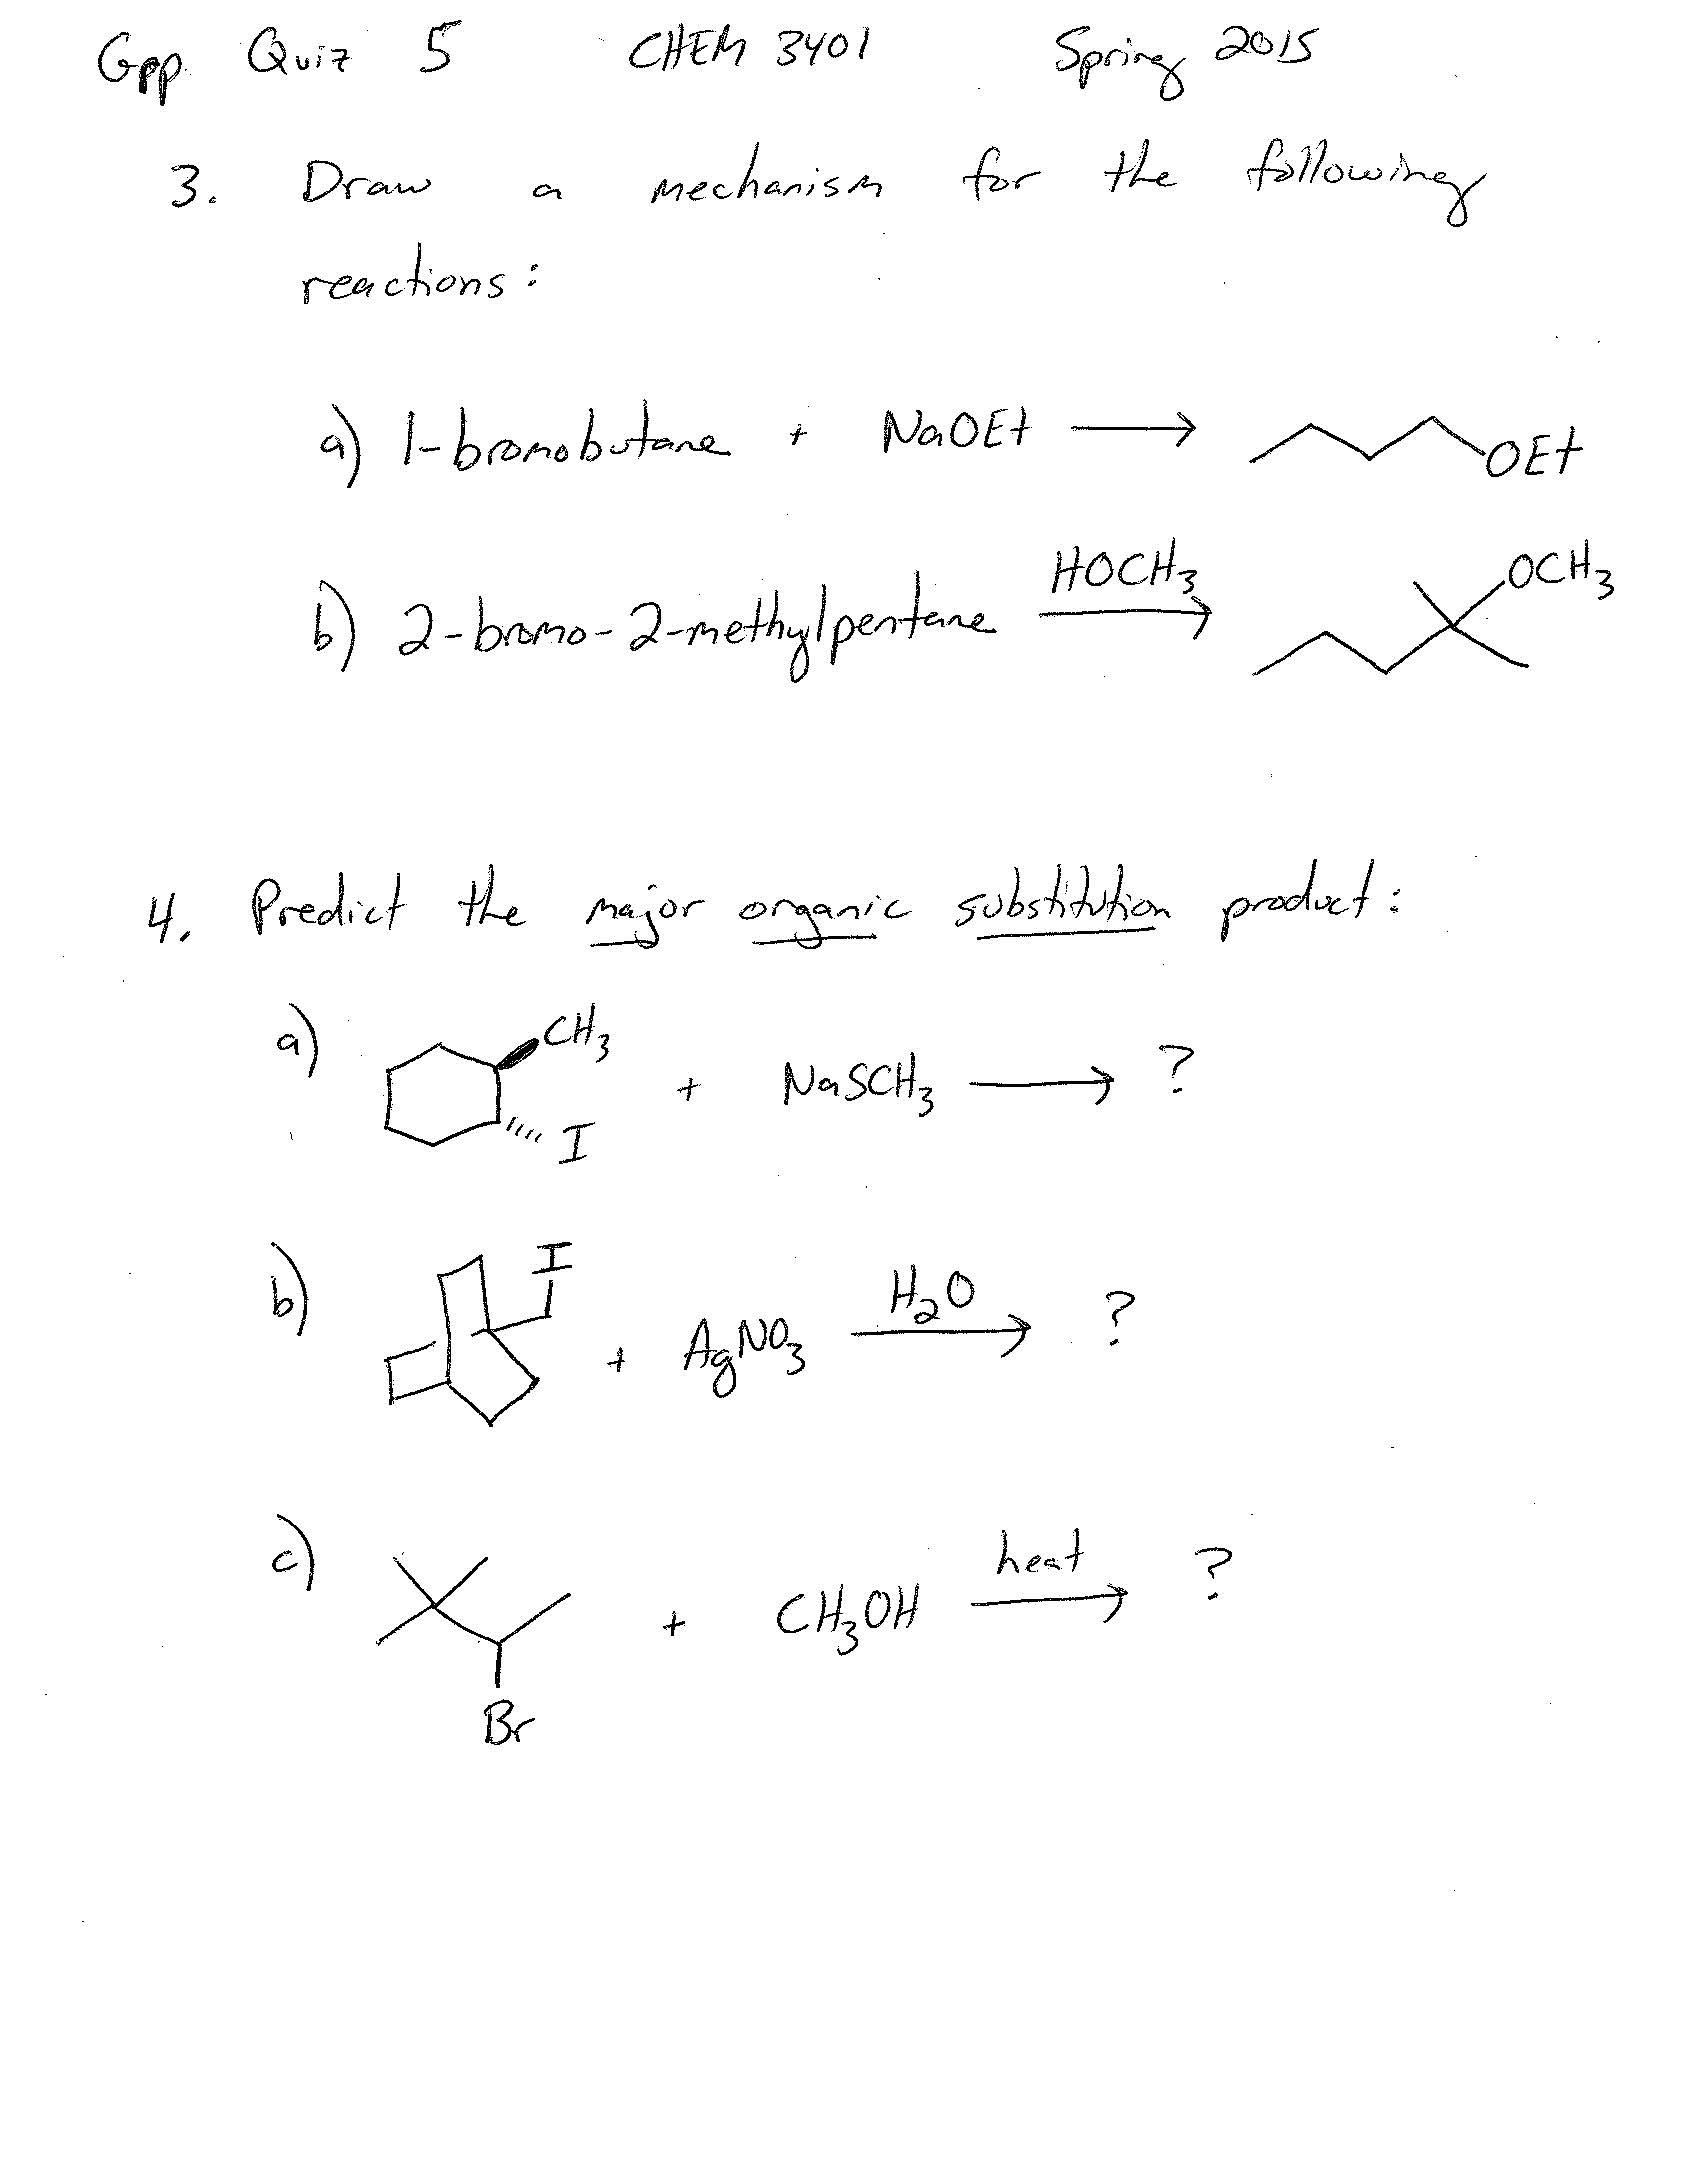 Gpp Quiz 5 CHEM 3401 Spring 2015
3. Draw a mechanism for the following
reactions:
a) 1-bromobutane + NaOEt → OEt
b) 2-bromo-2-methylpentane HOCH₃ → OCH₃
4. Predict the major organic substitution product:
a) CH₃ I + NaSCH₃ → ?
b) I + AgNO₃ H₂O → ?
c) Br + CH₃OH heat → ?